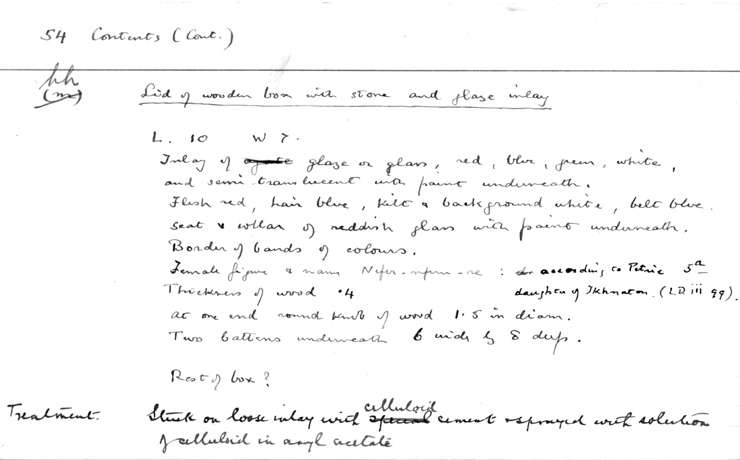 54 Contents (Cont.)
hh
(m)
Lid of wooden box with stone and glaze inlay
L. 10 W 7.
Inlay of agate glaze or glass, red, blue, green, white,
and semi-translucent with paint underneath.
Flesh red, hair blue, kilt & background white, belt blue.
Seat & collar of reddish glass with paint underneath.
Border of bands of colours.
Female figure & name Nefer-nefru-re : according to Petrie 5th
Thickness of wood .4 daughter of Ikhnaton. (L.D. iii 99).
At one end round knob of wood 1.5 in diam.
Two battens underneath 6 wide by 8 deep.
Rest of box?
Treatment. Stuck on loose inlay with special celluloid cement & sprayed with solution
of celluloid in amyl acetate